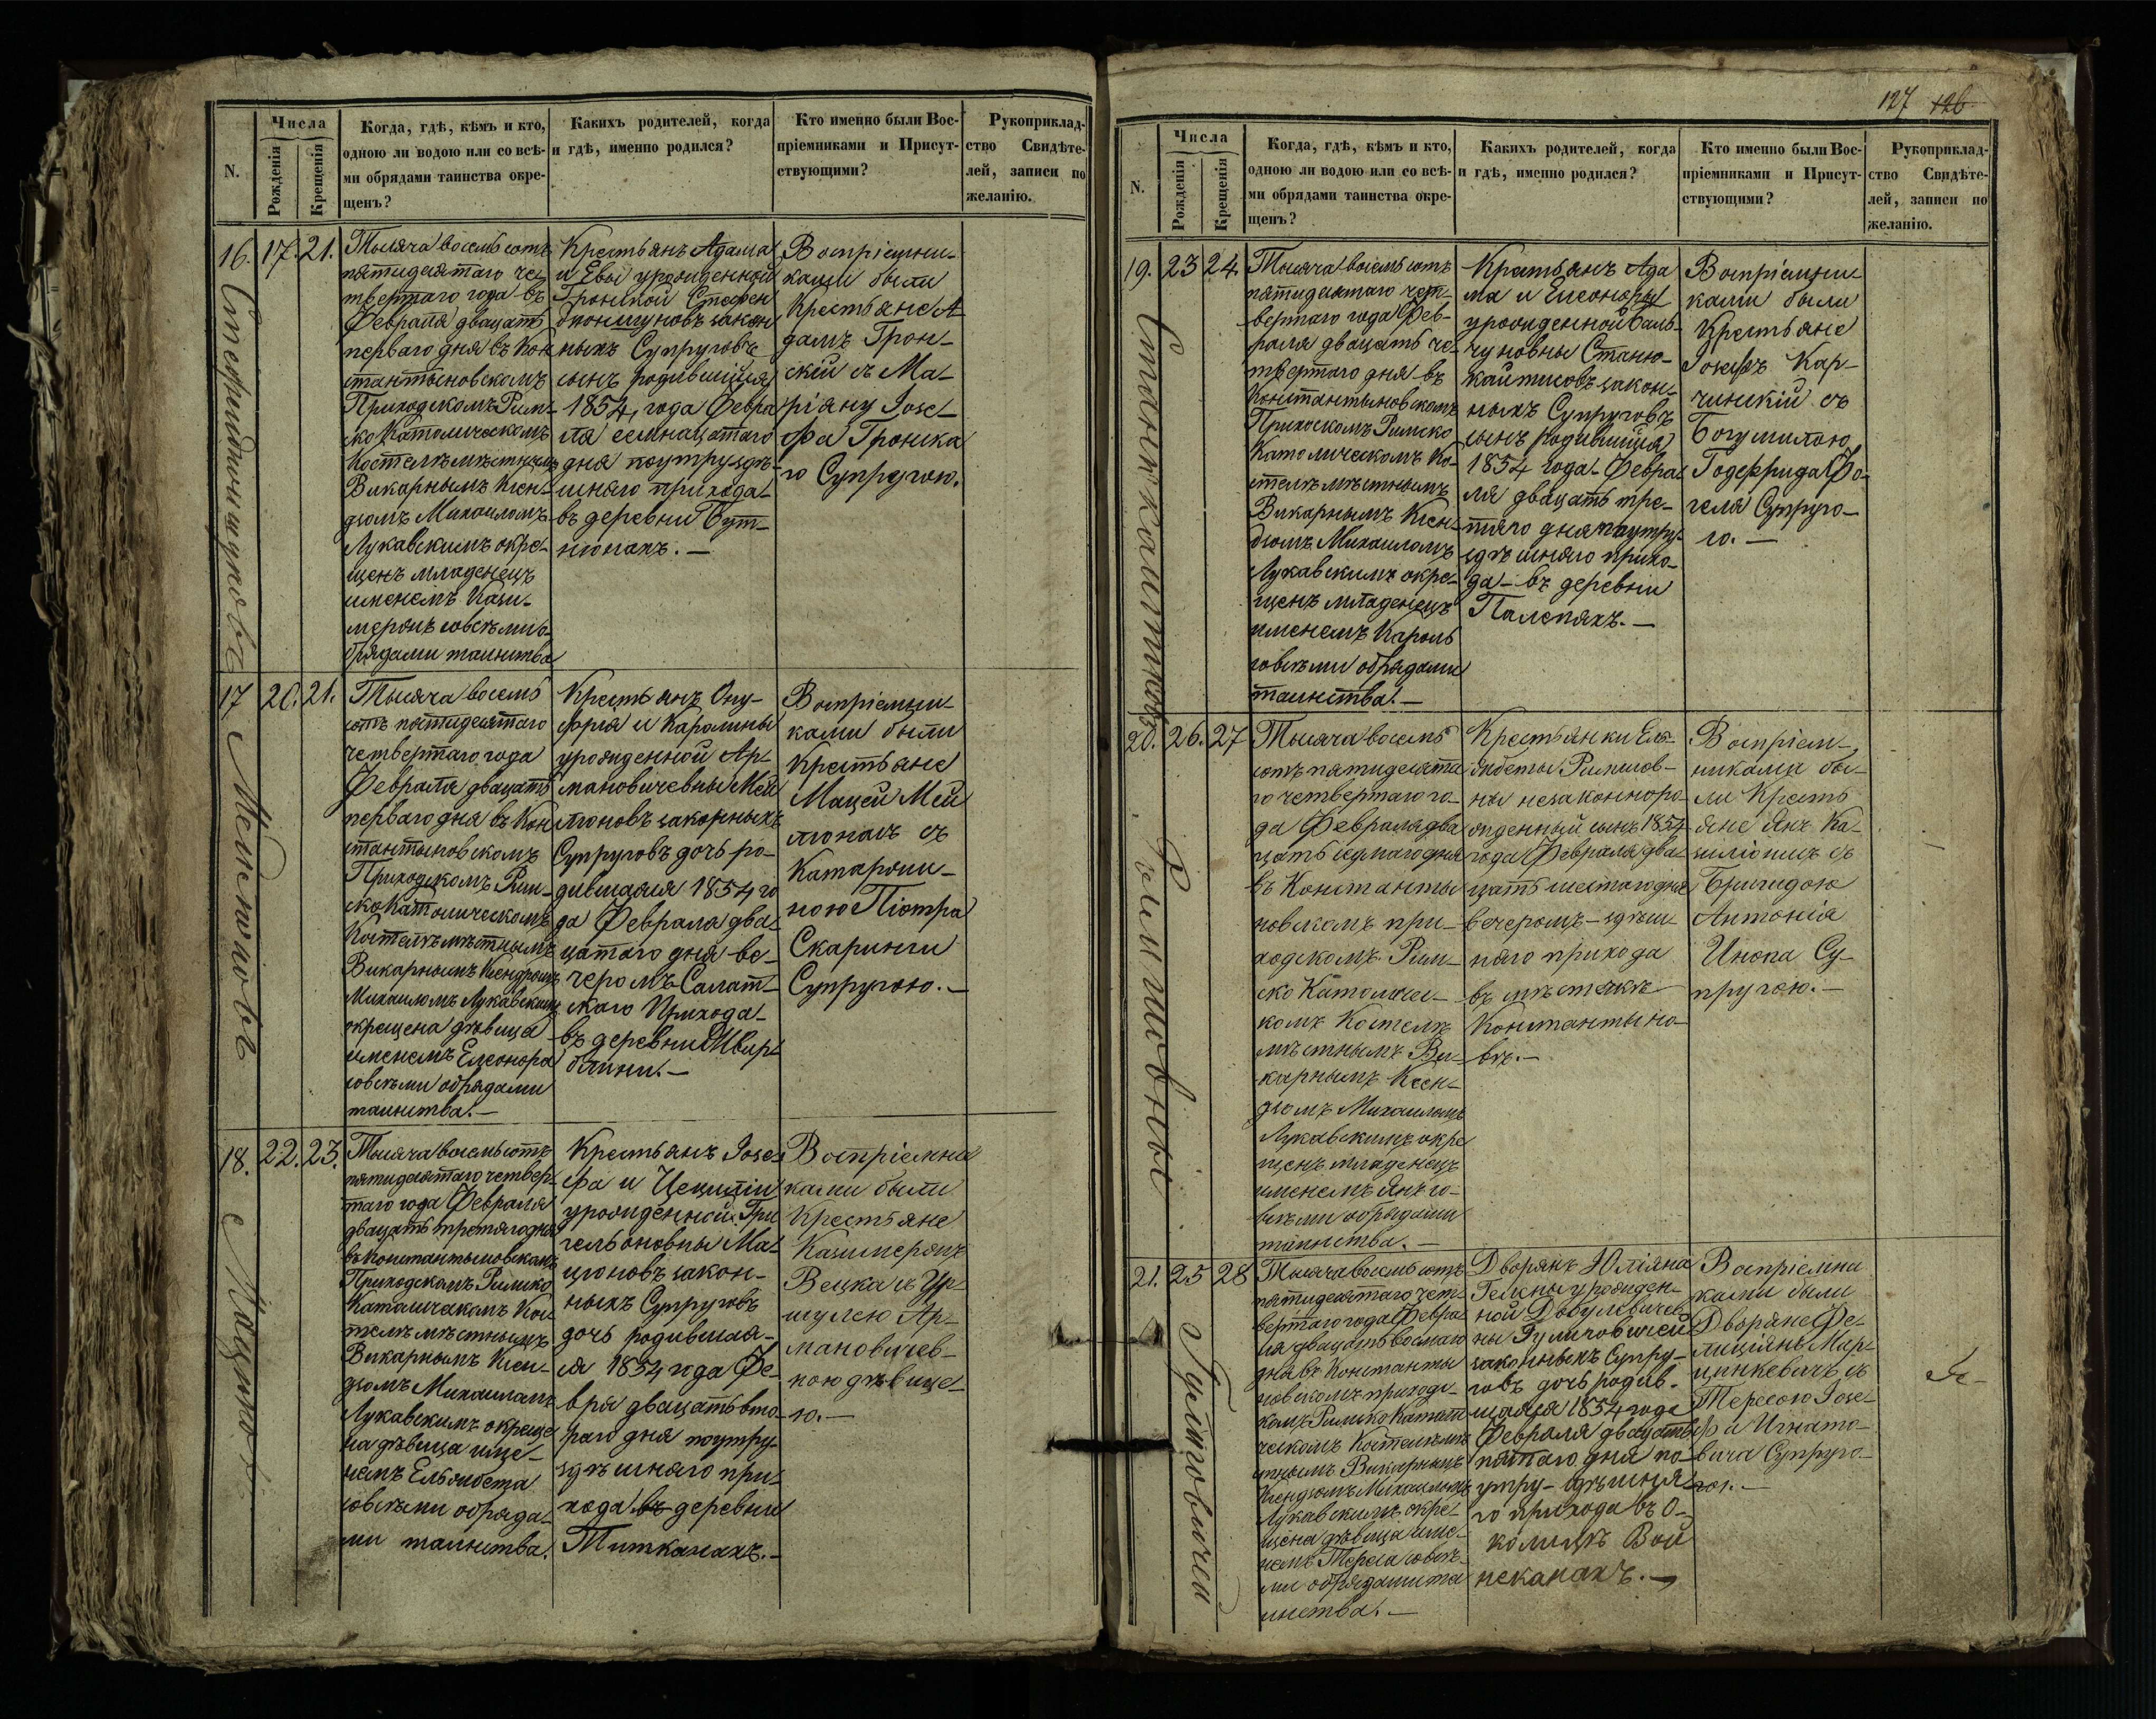 N.
Числа
Рожденія
Крещенія
Когда, гдѣ, кѣмъ и кто,
одною ли водою или со всѣ-
ми обрядами таинства окре-
щенъ?
Какихъ родителей, когда
и гдѣ, именно родился?
Кто именно были Вос-
пріемниками и Присут-
ствующими?
Рукоприклад-
ство Свидѣте-
лей, записи по
желанію.
16. 17. 21.
Тысяча восемьсотъ
пятидесятаго че-
твертаго года въ
Февраля двацать
перваго дня въ Кон
стантыновскомъ
Приходскомъ Рим-
ско Католическомъ
Костелѣ мѣстнымъ
Викарнымъ Ксен-
дзомъ Михаиломъ
Лукавскимъ окре-
щенъ младенецъ
именемъ Кази-
мерянъ совсѣми о-
брядами таинства
Крестьянъ Адама
и Евы урожденной
Гронской Стефен
ныхъ Супруговъ
сынъ родившійся
1854 года Февра
ля семнацатаго
дня поутру здѣ-
шняго прихода
въ деревни Бут-
нюнахъ. —
Воспріемни-
ками были
Крестьяне А
дамъ Грон-
скій съ Ма-
ріяну Іосе-
фа Гронска
го Супругою.
17 20. 21.
Мейлюновъ
Тысяча восемь
сотъ пятидесятаго
четвертаго года
Февраля двацать
перваго дня въ Кон
стантыновскомъ
Приходскомъ Рим-
ско Католическомъ
Костелѣ мѣстнымъ
Викарнымъ Ксендзомъ
Михаиломъ Лукавскимъ
окрещена дѣвица
именемъ Елеонора
совсѣми обрядами
таинства. —
Крестьянъ Ону-
фрія и Каролины
урожденной Ар-
мановичевны Мей
люновъ законныхъ
Супруговъ дочь ро-
дившаяся 1854 го
да Февраля два-
цатаго дня ве-
черомъ Салат-
скаго Прихода
въ деревни Швир-
блини. —
Воспріемни-
ками были
Крестьяне
Мацей Мей
люнасъ съ
Катарзи-
ною Піотра
Скаринги
Супругою. —
18. 22. 23.
Мацюновъ
Тысяча восемьсотъ
пятидесятаго четвер-
таго года Февраля
двацать третяго дня
въ Константыновскомъ
Приходскомъ Римско
Католическомъ Кос
телѣ мѣстнымъ
Викарнымъ Ксен-
дзомъ Михаиломъ
Лукавскимъ окреще
на дѣвица име-
немъ Ельжбета
совсѣми обряда-
ми таинства.
Крестьянъ Іосе-
фа и Цециліи
урожденной Гри
гельоновны Ма-
цюновъ закон-
ныхъ Супруговъ
дочь родившая-
ся 1854 года Фе-
вря двацать вто-
раго дня поутру
здѣшняго при-
хода въ деревни
Титканахъ. —
Воспріемни
ками были
Крестьяне
Казимерянъ
Вецка съ Ур-
шулею Ар-
мановичев-
ною дѣвице-
ю. —
127 126
N.
Числа
Рожденія
Крещенія
Когда, гдѣ, кѣмъ и кто,
одною ли водою или со всѣ-
ми обрядами таинства окре-
щенъ?
Какихъ родителей, когда
и гдѣ, именно родился?
Кто именно были Вос-
пріемниками и Присут-
ствующими?
Рукоприклад-
ство Свидѣте-
лей, записи по
желанію.
19. 23 24.
Тысяча восемьсотъ
пятидесятаго чет-
вертаго года Фев-
раля двацать че-
твертаго дня въ
Константыновскомъ
Приходскомъ Римско
Католическомъ Ко-
стелѣ мѣстнымъ
Викарнымъ Ксен-
дзомъ Михаиломъ
Лукавскимъ окре-
щенъ младенецъ
именемъ Кароль
совсѣми обрядами
таинства. —
Крестьянъ Ада
ма и Елеоноры
урожденной Баль-
чуновны Станю-
кайтисовъ закон-
ныхъ Супруговъ
сынъ родившійся
1854 года Февра
ля двацать тре-
тяго дня поутру
здѣшняго прихо-
да въ деревни
Палепяхъ. —
Воспріемни
ками были
Крестьяне
Іосефъ Кар-
чинскій съ
Богумилою
Годефрида Фо-
геля Супруго-
ю. —
20. 26. 27
Тысяча восемь
сотъ пятидесята
го четвертаго го-
да Февраля два
цать седмаго дня
въ Константы
новскомъ при-
ходскомъ Рим-
ско Католичес-
комъ Костелѣ
мѣстнымъ Ви-
карнымъ Ксен-
дзомъ Михаиломъ
Лукавскимъ окре
щенъ младенецъ
именемъ Янъ со-
всѣми обрядами
таинства. —
Крестьянки Ель-
жбеты Римшов-
ны незаконноро-
жденный сынъ 1854
года Февраля два
цать шестаго дня
вечеромъ здѣш-
няго прихода
въ мѣстечкѣ
Константыно-
вѣ. —
Воспріем-
никами бы-
ли Кресть
яне Янъ Ка-
зиліонисъ съ
Бригидою
Антонія
Инопа Су-
пругою. —
21. 25 28
Гулиновичей
Тысяча восемьсотъ
пятидесятаго чет-
вертаго года Февра
ля двацать восмаго
дня въ Константы
новскомъ приходс-
комъ Римско Католи
ческомъ Костелѣ мѣ
стнымъ Викарнымъ
Ксендзомъ Михаиломъ
Лукавскимъ окре-
щена дѣвица име-
немъ Тереса совсѣ-
ми обрядами та
инства. —
Дворянъ Юліяна
Гелены урожден-
ной Довгулевичев-
ны Гулиновичей
законныхъ Супру-
говъ дочь родив-
шаяся 1854 года
Февраля двацать
пятаго дня по-
утру здѣшня
го прихода въ О-
колицѣ Вой
неканахъ. —
Воспріемни
ками были
Дворяне Фе-
лиціянъ Мар-
цинкевичъ съ
Тересою Іосе-
фа Игнато-
вича Супруго-
ю. —